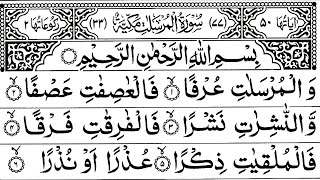 اٰیَاتُهَا ۵۰ (۷۷) سُوْرَةُ الْمُرْسَلٰتِ مَكِّیَّةٌ (۳۳) رُكُوْعَاتُهَا ۲
بِسْمِ اللّٰهِ الرَّحْمٰنِ الرَّحِیْمِ
وَ الْمُرْسَلٰتِ عُرْفًا ۱ فَالْعٰصِفٰتِ عَصْفًا ۲
وَّ النّٰشِرٰتِ نَشْرًا ۳ فَالْفٰرِقٰتِ فَرْقًا ۴
فَالْمُلْقِیٰتِ ذِكْرًا ۵ عُذْرًا اَوْ نُذْرًا ۶